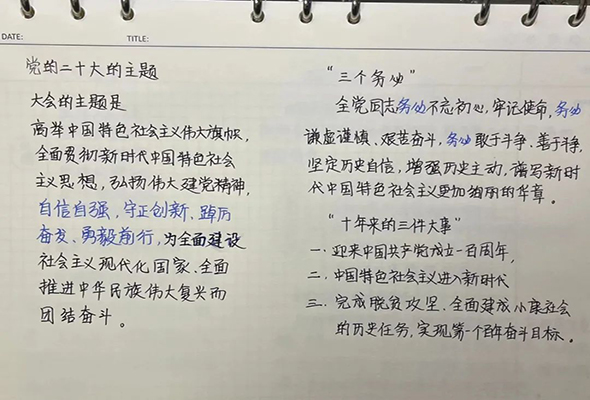 DATE:
TITLE:
党的二十大的主题
大会的主题是
高举中国特色社会主义伟大旗帜,
全面贯彻新时代中国特色社会
主义思想, 弘扬伟大建党精神,
自信自强, 守正创新、踔厉
奋发、勇毅前行, 为全面建设
社会主义现代化国家、全面
推进中华民族伟大复兴而
团结奋斗。
“三个务必”
全党同志务必不忘初心, 牢记使命, 务必
谦虚谨慎、艰苦奋斗, 务必敢于斗争、善于斗争,
坚定历史自信, 增强历史主动, 谱写新时
代中国特色社会主义更加绚丽的华章。
“十年来的三件大事”
一. 迎来中国共产党成立一百周年,
二. 中国特色社会主义进入新时代
三. 完成脱贫攻坚、全面建成小康社会
的历史任务, 实现第一个百年奋斗目标。